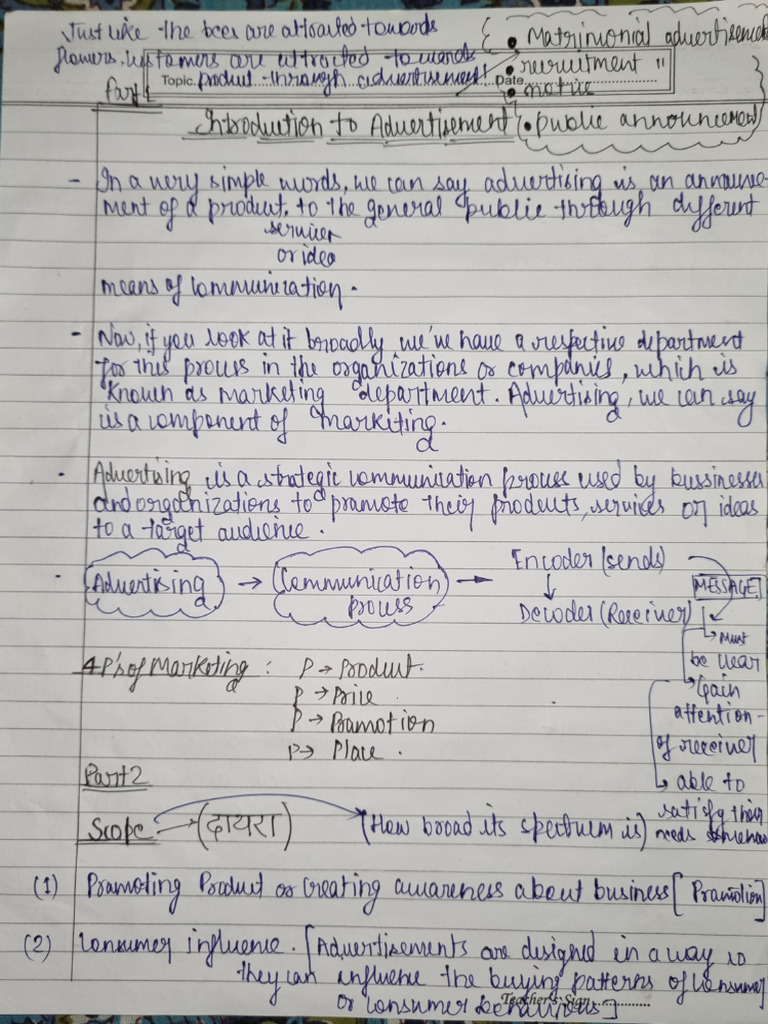 Just like the bees are attracted towards
flowers, customers are attracted towards
Topic. product through advertisement. Date
• Matrimonial advertisement
• recruitment "
• notice
• public announcement
Part 1
Introduction to Advertisement
- In a very simple words, we can say advertising is an announce-
ment of a product, to the general public through different
service
or idea
means of communication.
- Now, if you look at it broadly we've have a respective department
for this process in the organizations or companies, which is
known as marketing department. Advertising, we can say
is a component of marketing.
- Advertising is a strategic communication process used by bussinesses
and organizations to pramote their products, services or ideas
to a target audience.
- Advertising → Communication process → Encoder (sends)
↓
Decoder (Receiver)
MESSAGE
→ Must
be clear
→ Gain
attention
of receiver
→ able to
satisfy their
needs
4 P's of Marketing : P → Product.
P → Price
P → Pramotion
P → Place.
Part 2
Scope → (दायरा) (How broad its spectrum is)
(1) Pramoting Product or creating awareness about business [Pramotion]
(2) Consumer influence. [Advertisements are designed in a way so
they can influence the buying patterns of consumer
or consumer behaviours]
Teacher's Sign